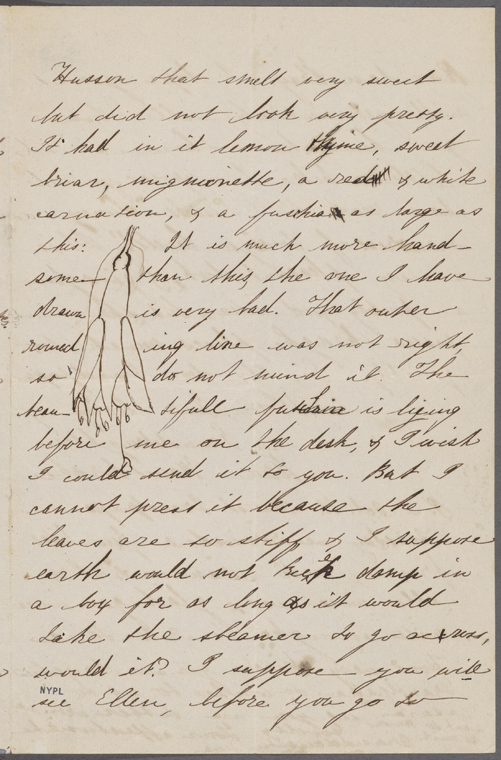 Husson that smelt very sweet
but did not look very pretty.
It had in it lemon thyme, sweet
briar, mignionette, a red & white
carnation, & a fuschia as large as
this: It is much more hand-
some than this, the one I have
drawn is very bad. That outer
round ing line was not right
so do not mind it. The
beau- tifull fuschia is lying
before me on the desk, & I wish
I could send it to you. But I
cannot press it because the
leaves are so stiff & I suppose
earth would not keep damp in
a box for as long as it would
take the steamer to go across,
would it? I suppose you will
NYPL
see Ellen, before you go to